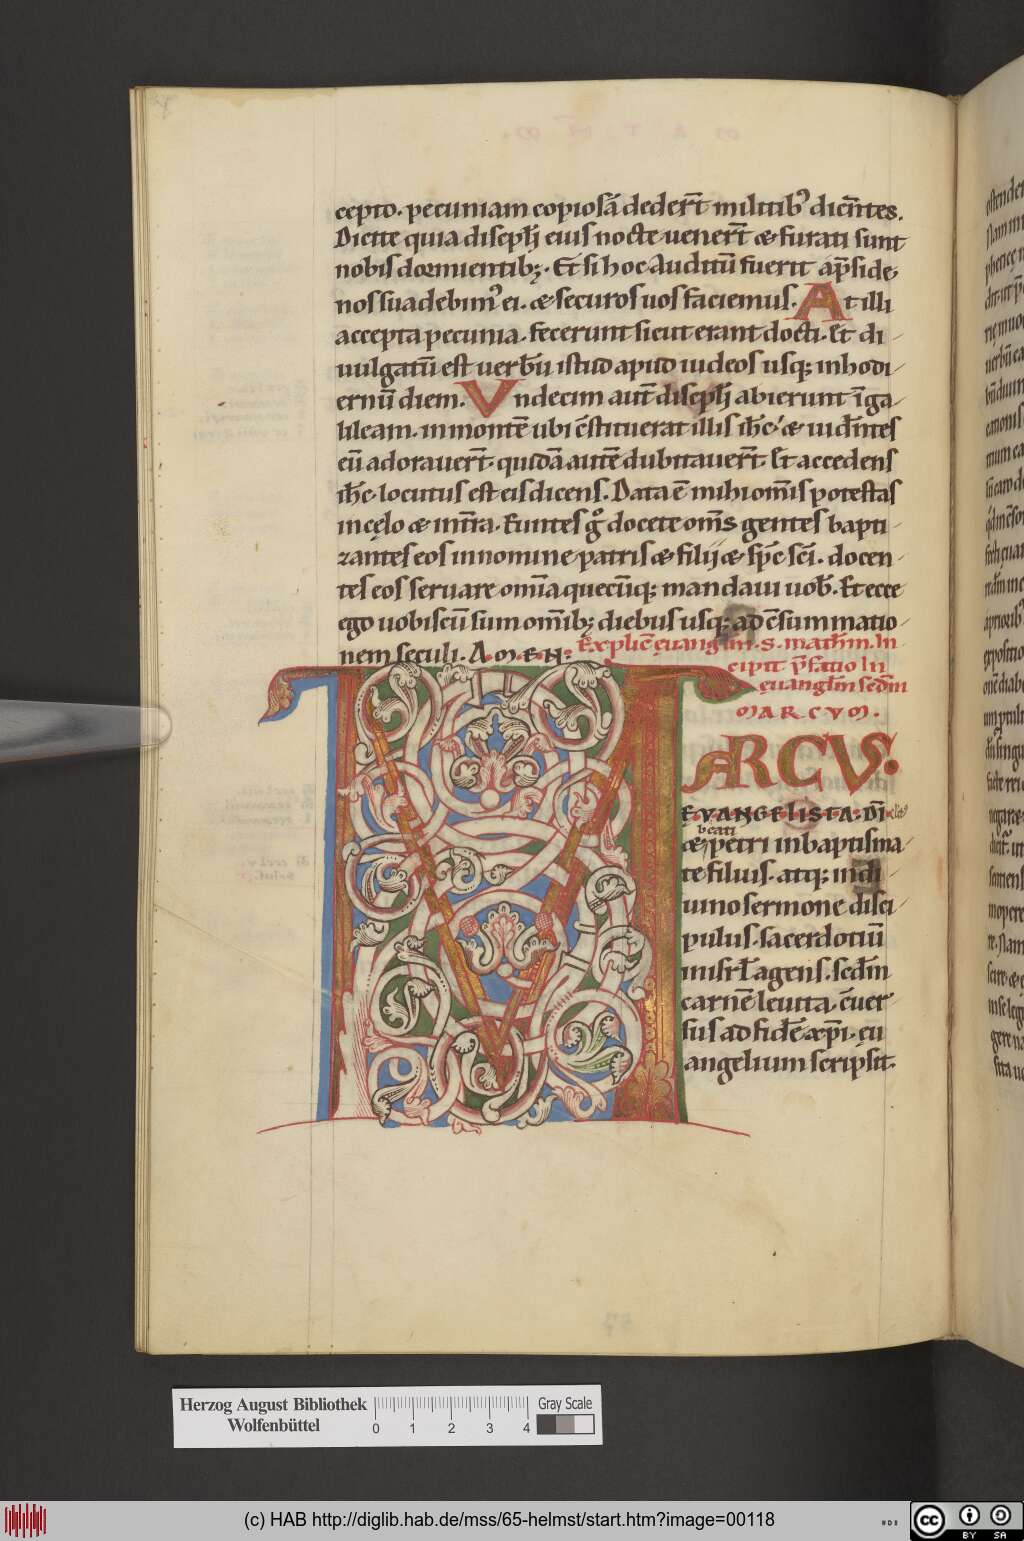 cepto. pecuniam copiosā dedert̄ militib⁹ dicn̄tes.
Dicite quia discipl̄i eius nocte uenert̄ & furati sunt
nobis dormientib;. Et si hoc auditū fuerit a p̄side,
nos suadebim⁹ ei. & securos uos faciemus. At illi
accepta pecunia. fecerunt sicut erant docti. Et di
uulgatū est uerbū istud apud iudeos usq; in hodi
ernū diem. Vndecim aut̄ discipl̄i abierunt ī ga
lileam. in montē ubi c̄stituerat illis ih̄c. & uidn̄tes
eū adorauert̄. quidā autē dubitauert̄. Et accedens
ih̄c. locutus est eis dicens. Data ē mihi om̄is potestas
in cęlo & in tr̄a. Euntes gͦ docete om̄s gentes bapti
zantes eos in nomine patris & filii & sp̄c sc̄i. docen
tes eos seruare om̄ia quecūq; mandaui uob̄. Et ecce
ego uobiscū sum om̄ib; diebus usq; ad c̄summatio
nem seculi. AMEN:
Explic̄ ęuanglm̄. S. math̄m. In
cipit p̄fatio In
ęuangl̄m scd̄m
MARCVM.
MARCVS.
EVANGELISTA. DĪ
beati
& petri in baptisma
te filius. atq; in di
uino sermone disci
pulus. sacerdotiū
in isrl̄ agens. scd̄m
carnē leuita. c̄uer
sus ad fidē xp̄i. ęu
angelium scripsit.
Herzog August Bibliothek
Wolfenbüttel
0 1 2 3 4
Gray Scale
(c) HAB http://diglib.hab.de/mss/65-helmst/start.htm?image=00118
cc BY SA